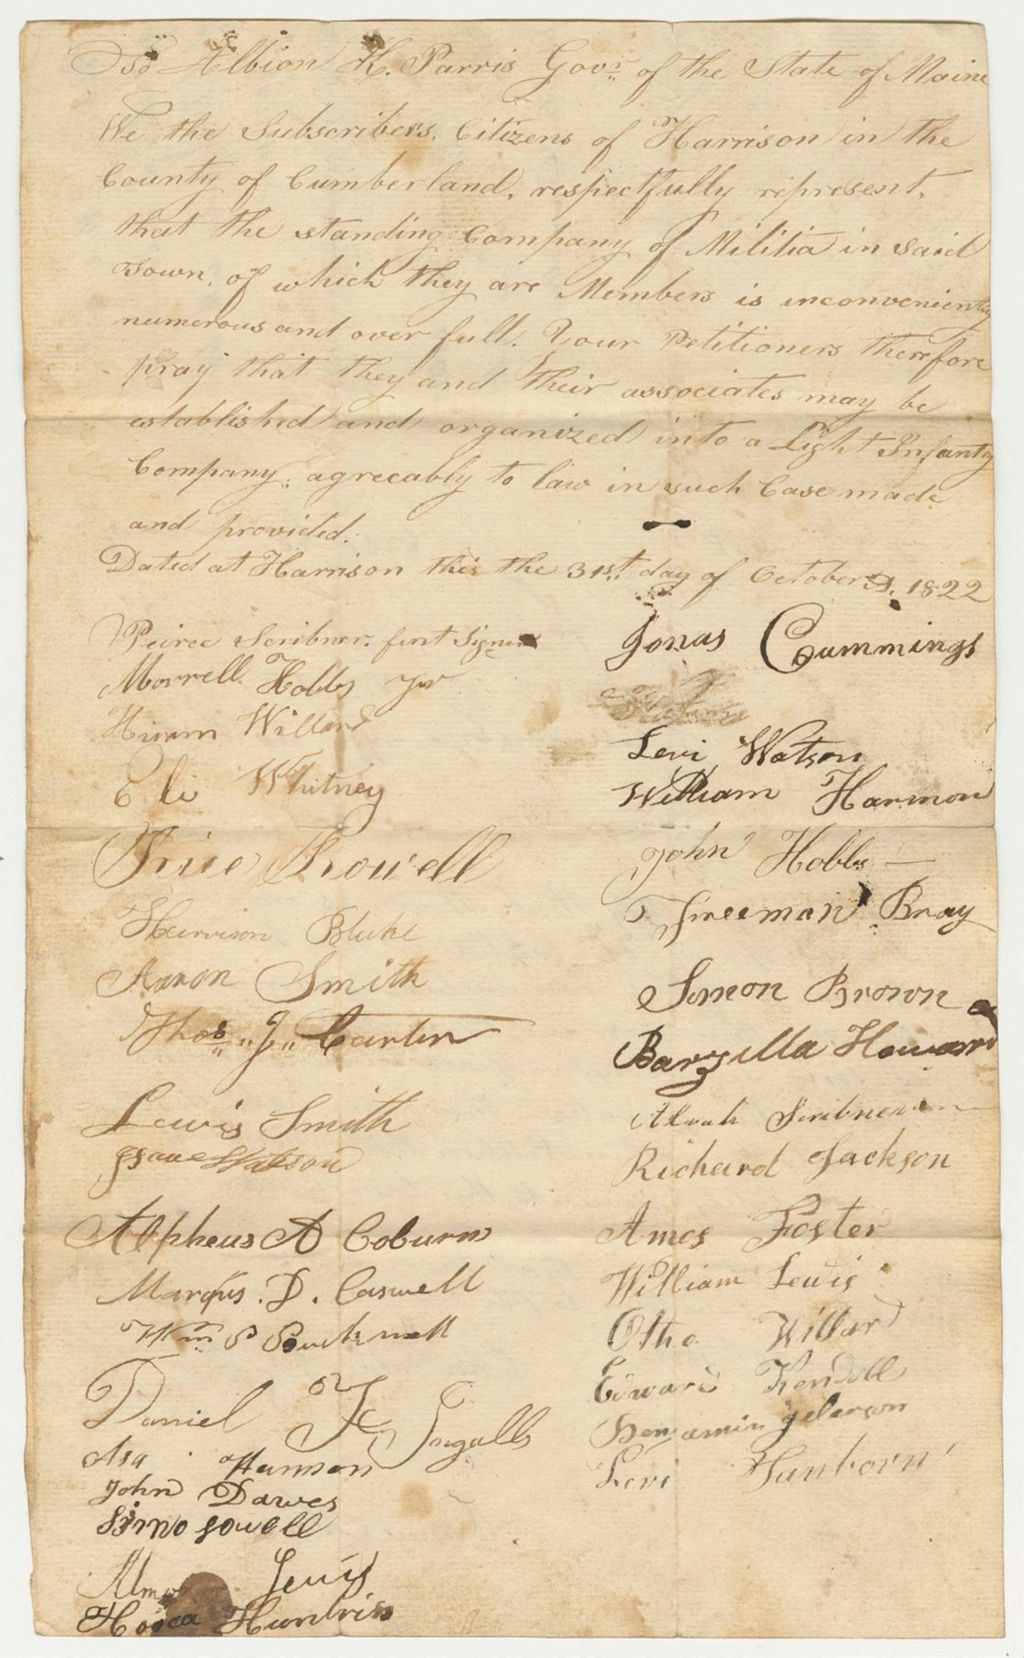 To Albion K. Parris Govr. of the State of Maine
We the Subscribers, Citizens of Harrison in the
County of Cumberland, respectfully represent,
that the standing Company of Militia in said
Town, of which they are Members is inconveniently
numerous and over full. Your Petitioners therefore
pray that they and their associates may be
established and organized into a Light Infanty
Company, agreeably to law in such Case made
and provided.
Dated at Harrison this the 31st. day of October 1822
Peirce Scribner. first Signer
Morrell Hobbs Jr
Hiram Willard
Eli Whitney
Price Rowell
Harrison Blake
Aaron Smith
Thos "J" Carter
Lewis Smith
Isaac Watson
Alpheus A Coburn
Marqus. D. Caswell
Wm S
Daniel H. Ingalls
Asa Hanson
John Dawes
Simo Lowell
Lewis
Hosea
Jonas Cummings
Levi Watson
William Harmon
John Hobbs
Freeman Bray
Simeon Brown
Barzilla Howard
Alvah Scribner
Richard Jackson
Amos Foster
William Lewis
Otho Willard
Edward Kendall
Benjamin
Levi Sanborn